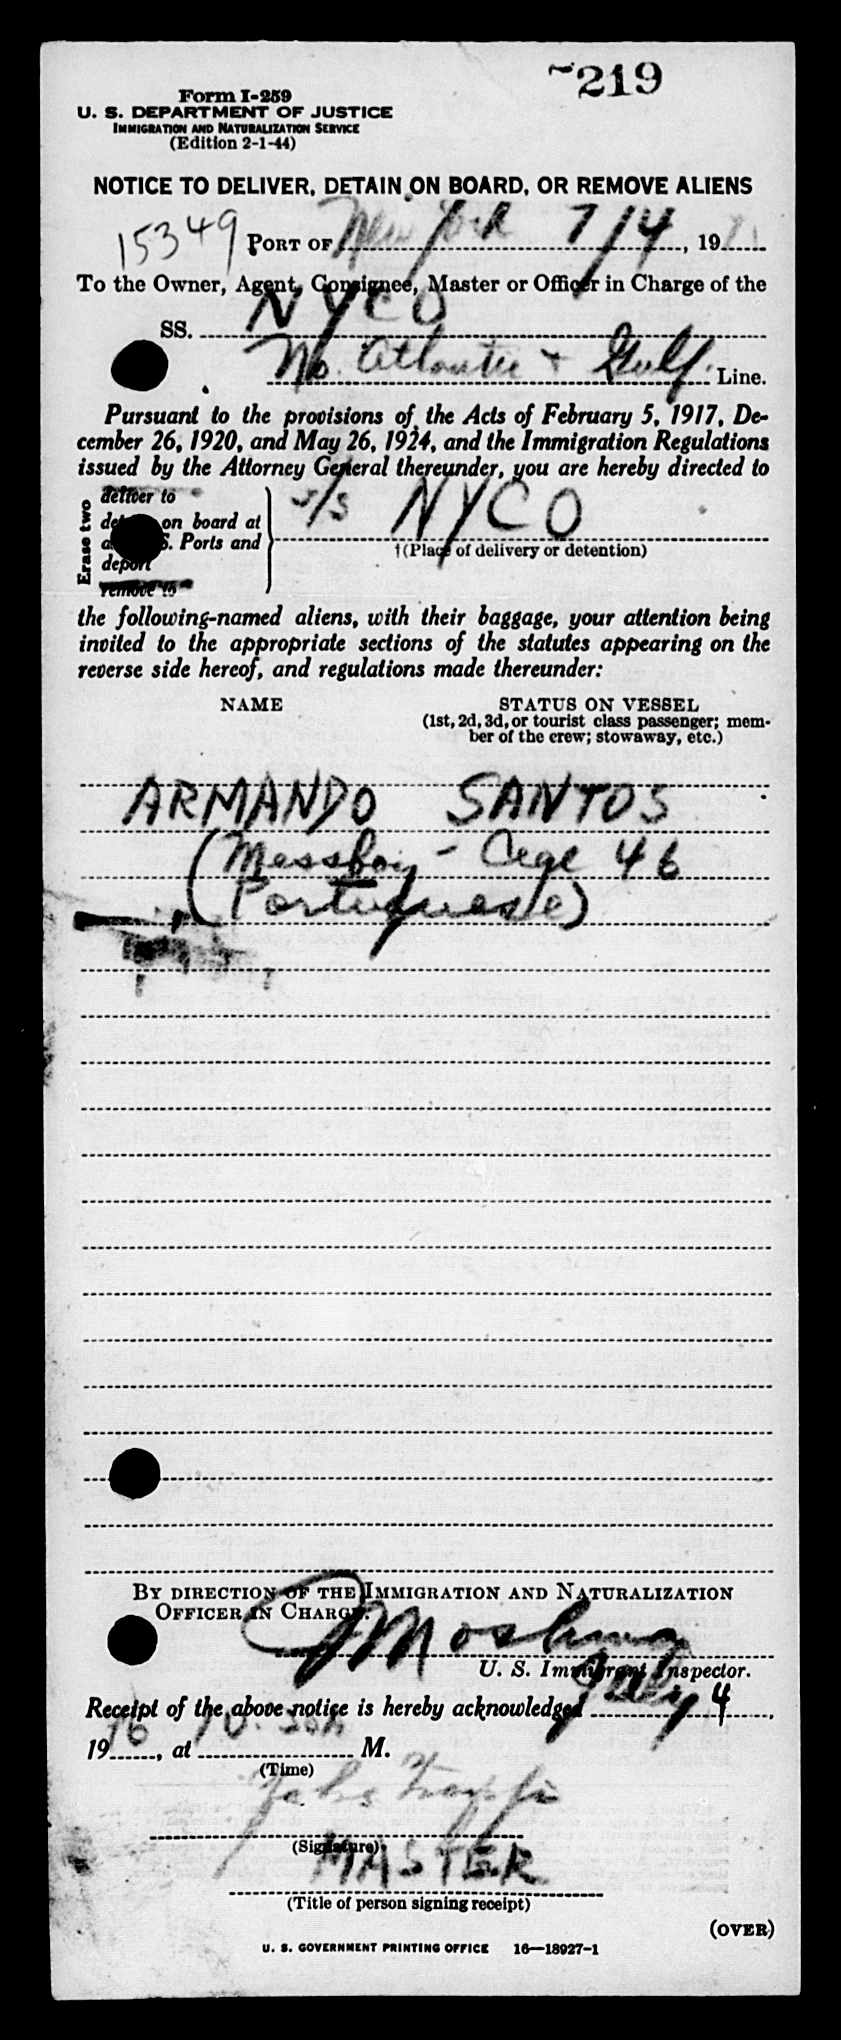 219
Form I-259
U. S. DEPARTMENT OF JUSTICE
IMMIGRATION AND NATURALIZATION SERVICE
(Edition 2-1-44)
NOTICE TO DELIVER, DETAIN ON BOARD, OR REMOVE ALIENS
15349 PORT OF New York 7/4, 19
To the Owner, Agent, Consignee, Master or Officer in Charge of the
SS. NYCO
No. Atlantic + Gulf Line.
Pursuant to the provisions of the Acts of February 5, 1917, De-
cember 26, 1920, and May 26, 1924, and the Immigration Regulations
issued by the Attorney General thereunder, you are hereby directed to
Erase two
deliver to
on board at
S. Ports and
deport
remove to
s/s NYCO
†(Place of delivery or detention)
the following-named aliens, with their baggage, your attention being
invited to the appropriate sections of the statutes appearing on the
reverse side hereof, and regulations made thereunder:
NAME STATUS ON VESSEL
(1st, 2d, 3d, or tourist class passenger; mem-
ber of the crew; stowaway, etc.)
ARMANDO SANTOS
(Messboy - Age 46
Portuguese)
BY DIRECTION OF THE IMMIGRATION AND NATURALIZATION
OFFICER IN CHARGE.
U. S. Immigrant Inspector.
Receipt of the above notice is hereby acknowledged July 4,
19, at M.
(Time)
(Signature)
MASTER
(Title of person signing receipt)
(OVER)
U. S. GOVERNMENT PRINTING OFFICE 16—18927-1